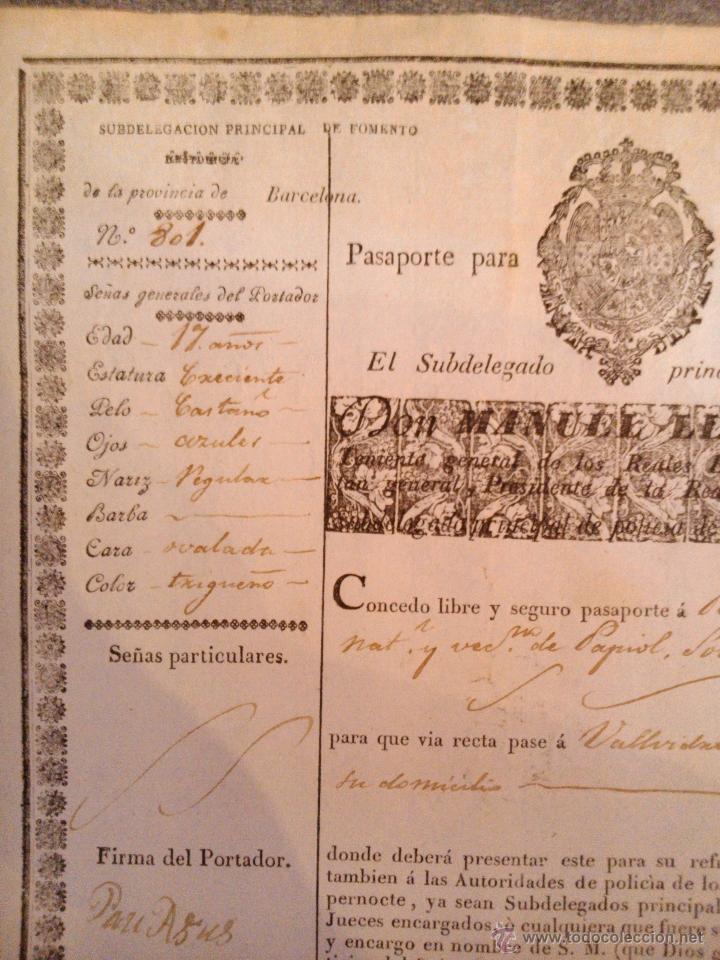 SUBDELEGACION PRINCIPAL DE FOMENTO
de la provincia de Barcelona.
N.º 801.
Señas generales del Portador
Edad – 17 años –
Estatura Creciente
Pelo – Castañ.º
Ojos – azules –
Nariz – Regular –
Barba –
Cara – ovalada –
Color – trigueño –
Señas particulares.
Firma del Portador.
Pasaporte para
El Subdelegado princ
Don MANUEL LL
Teniente general de los Reales
tan general, Presidente de la Rea
Subdelegado principal de policia de
Concedo libre y seguro pasaporte á
nat.l y vec.no de Papiol, Sol
para que via recta pase á Vallvidre
su domicilio
donde deberá presentar este para su refr
tambien á las Autoridades de policìa de lo
pernocte, ya sean Subdelegados principal
Jueces encargados, ó cualquiera que fuere s
y encargo en nombre de S. M. (que Dios g
© www.todocoleccion.net